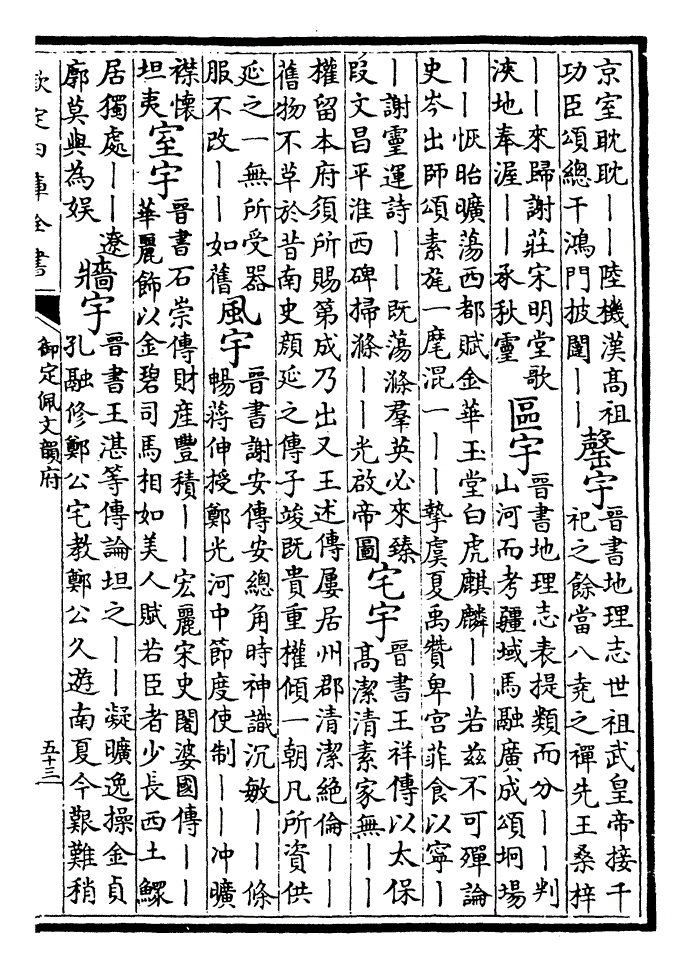 京室耽耽——陸機漢高祖
功臣頌總干鴻門披闥——
罄宇
晉書地理志世祖武皇帝接千
祀之餘當八堯之禪先王桑梓
——來歸謝莊宋明堂歌
浹地奉渥——承秋靈
區宇
晉書地理志表提類而分——判
山河而考疆域馬融廣成頌坰場
——恢胎曠蕩西都賦金華玉堂白虎麒麟——若茲不可殫論
史岑出師頌素旄一麾混一——摯虞夏禹贊卑宮菲食以寧—
—謝靈運詩———既蕩滌羣英必來臻
段文昌平淮西碑掃滌——光啟帝圖
宅宇
晉書王祥傳以太保
高潔清素家無——
權留本府須所賜第成乃出又王述傳屢居州郡清潔絶倫——
舊物不草於昔南史顏延之傳子竣既貴重權傾一朝凡所資供
延之一無所受器
服不改——如舊
風宇
晉書謝安傳安總角時神識沉敏——條
暢蔣伸授鄭光河中節度使制——冲曠
襟懷
坦夷
室宇
晉書石崇傳財産豐積——宏麗宋史闍婆國傳——
華麗飾以金碧司馬相如美人賦若臣者少長西土鰥
居獨處——遼
廓莫與為娱
牆宇
晉書王湛等傳論坦之——凝曠逸操金貞
孔融修鄭公宅教鄭公久遊南夏今艱難稍
欽定四庫全書
御定佩文韻府
五十三